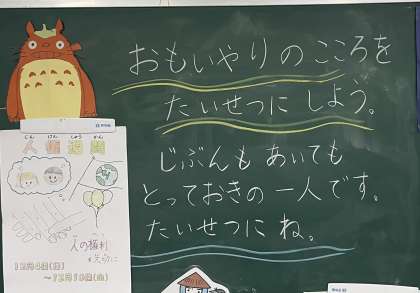 おもいやりの こころを
たいせつに しよう。
じぶんも あいても
とっておきの 一人です。
たいせつに ね。
じん けん しゅう かん
人権週間
人の権利
を大切に
12月4日(月)
〜12月10日(日)